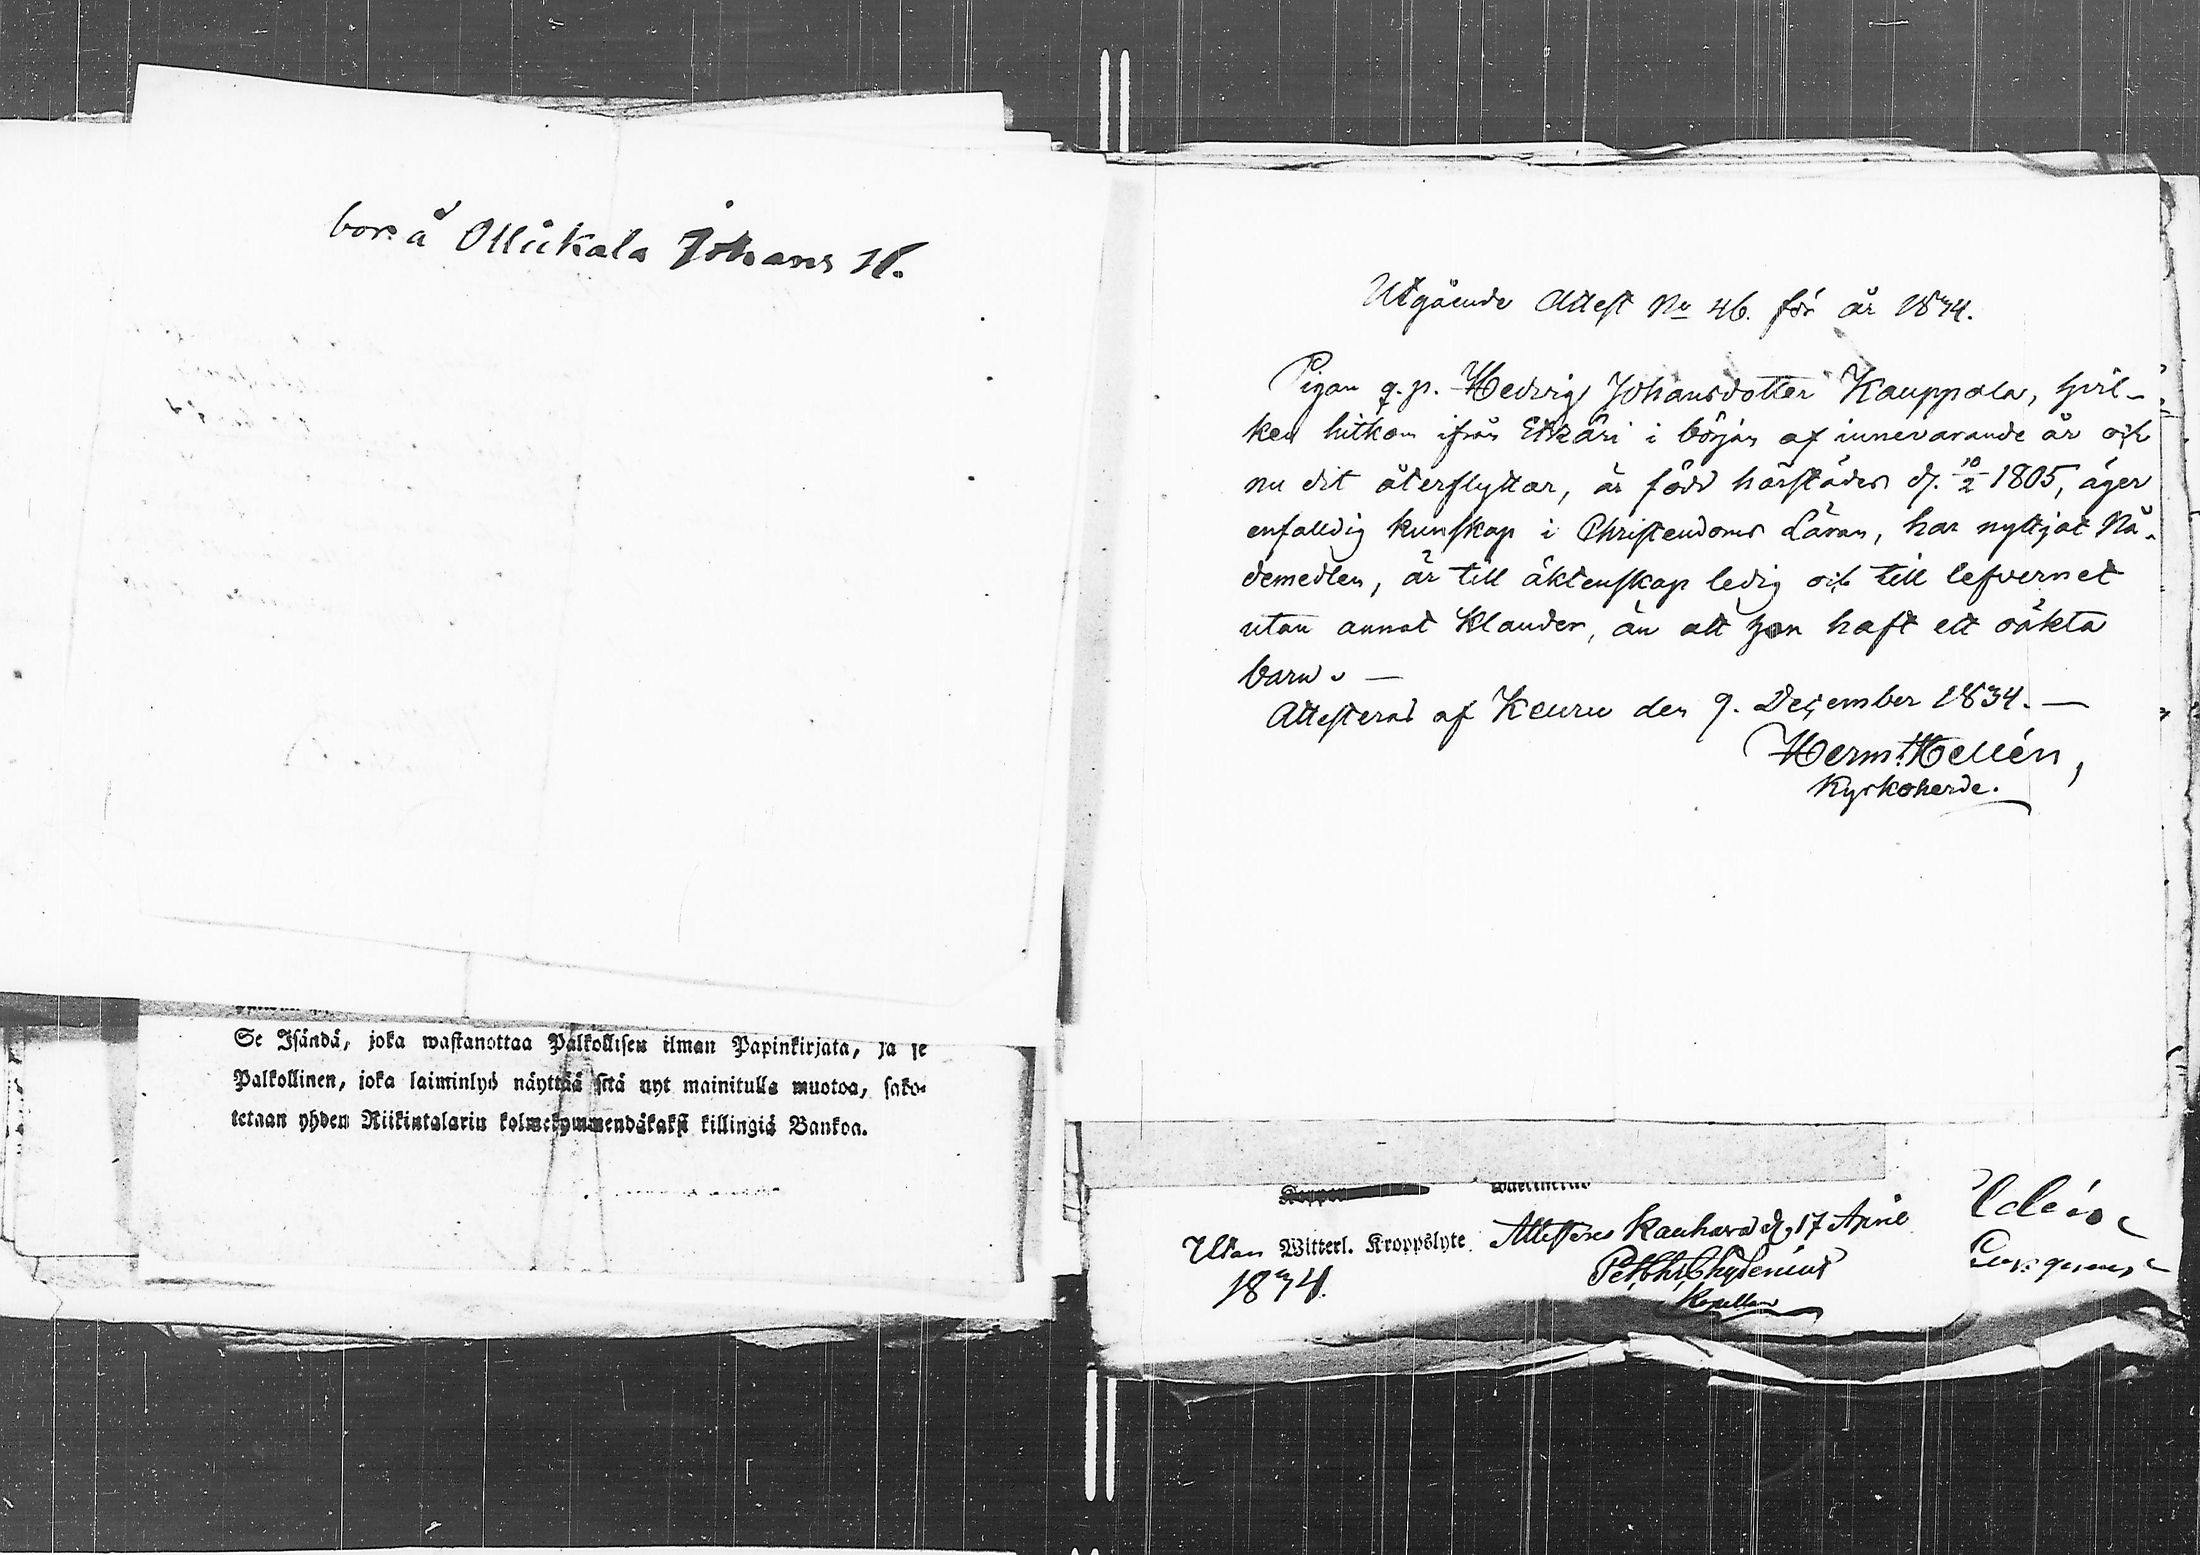 bor å Ollikala Johans H.
Se Isändä, joka wastanottaa Palkollisen ilman Papinkirjata, ja se
Palkollinen, joka laiminlyö näyttää sitä nyt mainitulla muotoa, sako-
tetaan yhden Riikintalarin kolmekymmendäkaksi killingiä Bankoa.
Utgående Attest No 46. för år 1834.
Pigan q. p. Hedvig Johansdotter Kauppala, hvil-
ken hitkom ifrån Etzäri i början af innevarande år och
nu dit återflyttar, är född härstädes d. 10/2 1805, äger
enfaldig kunskap i Christendoms Läran, har nyttjat Nå-
demedlen, är till äktenskap ledig och till lefvernet
utan annat klander, än att hon haft ett oäkta
barn. —
Attesteras af Keuru den 9. December 1834. —
Herm. Hellén,
Kyrkoherde.
Utan Witterl. Kroppslyte. Attesteras Kauhava d. 17 April
1834.
Pet. Chydenius
Kapellan